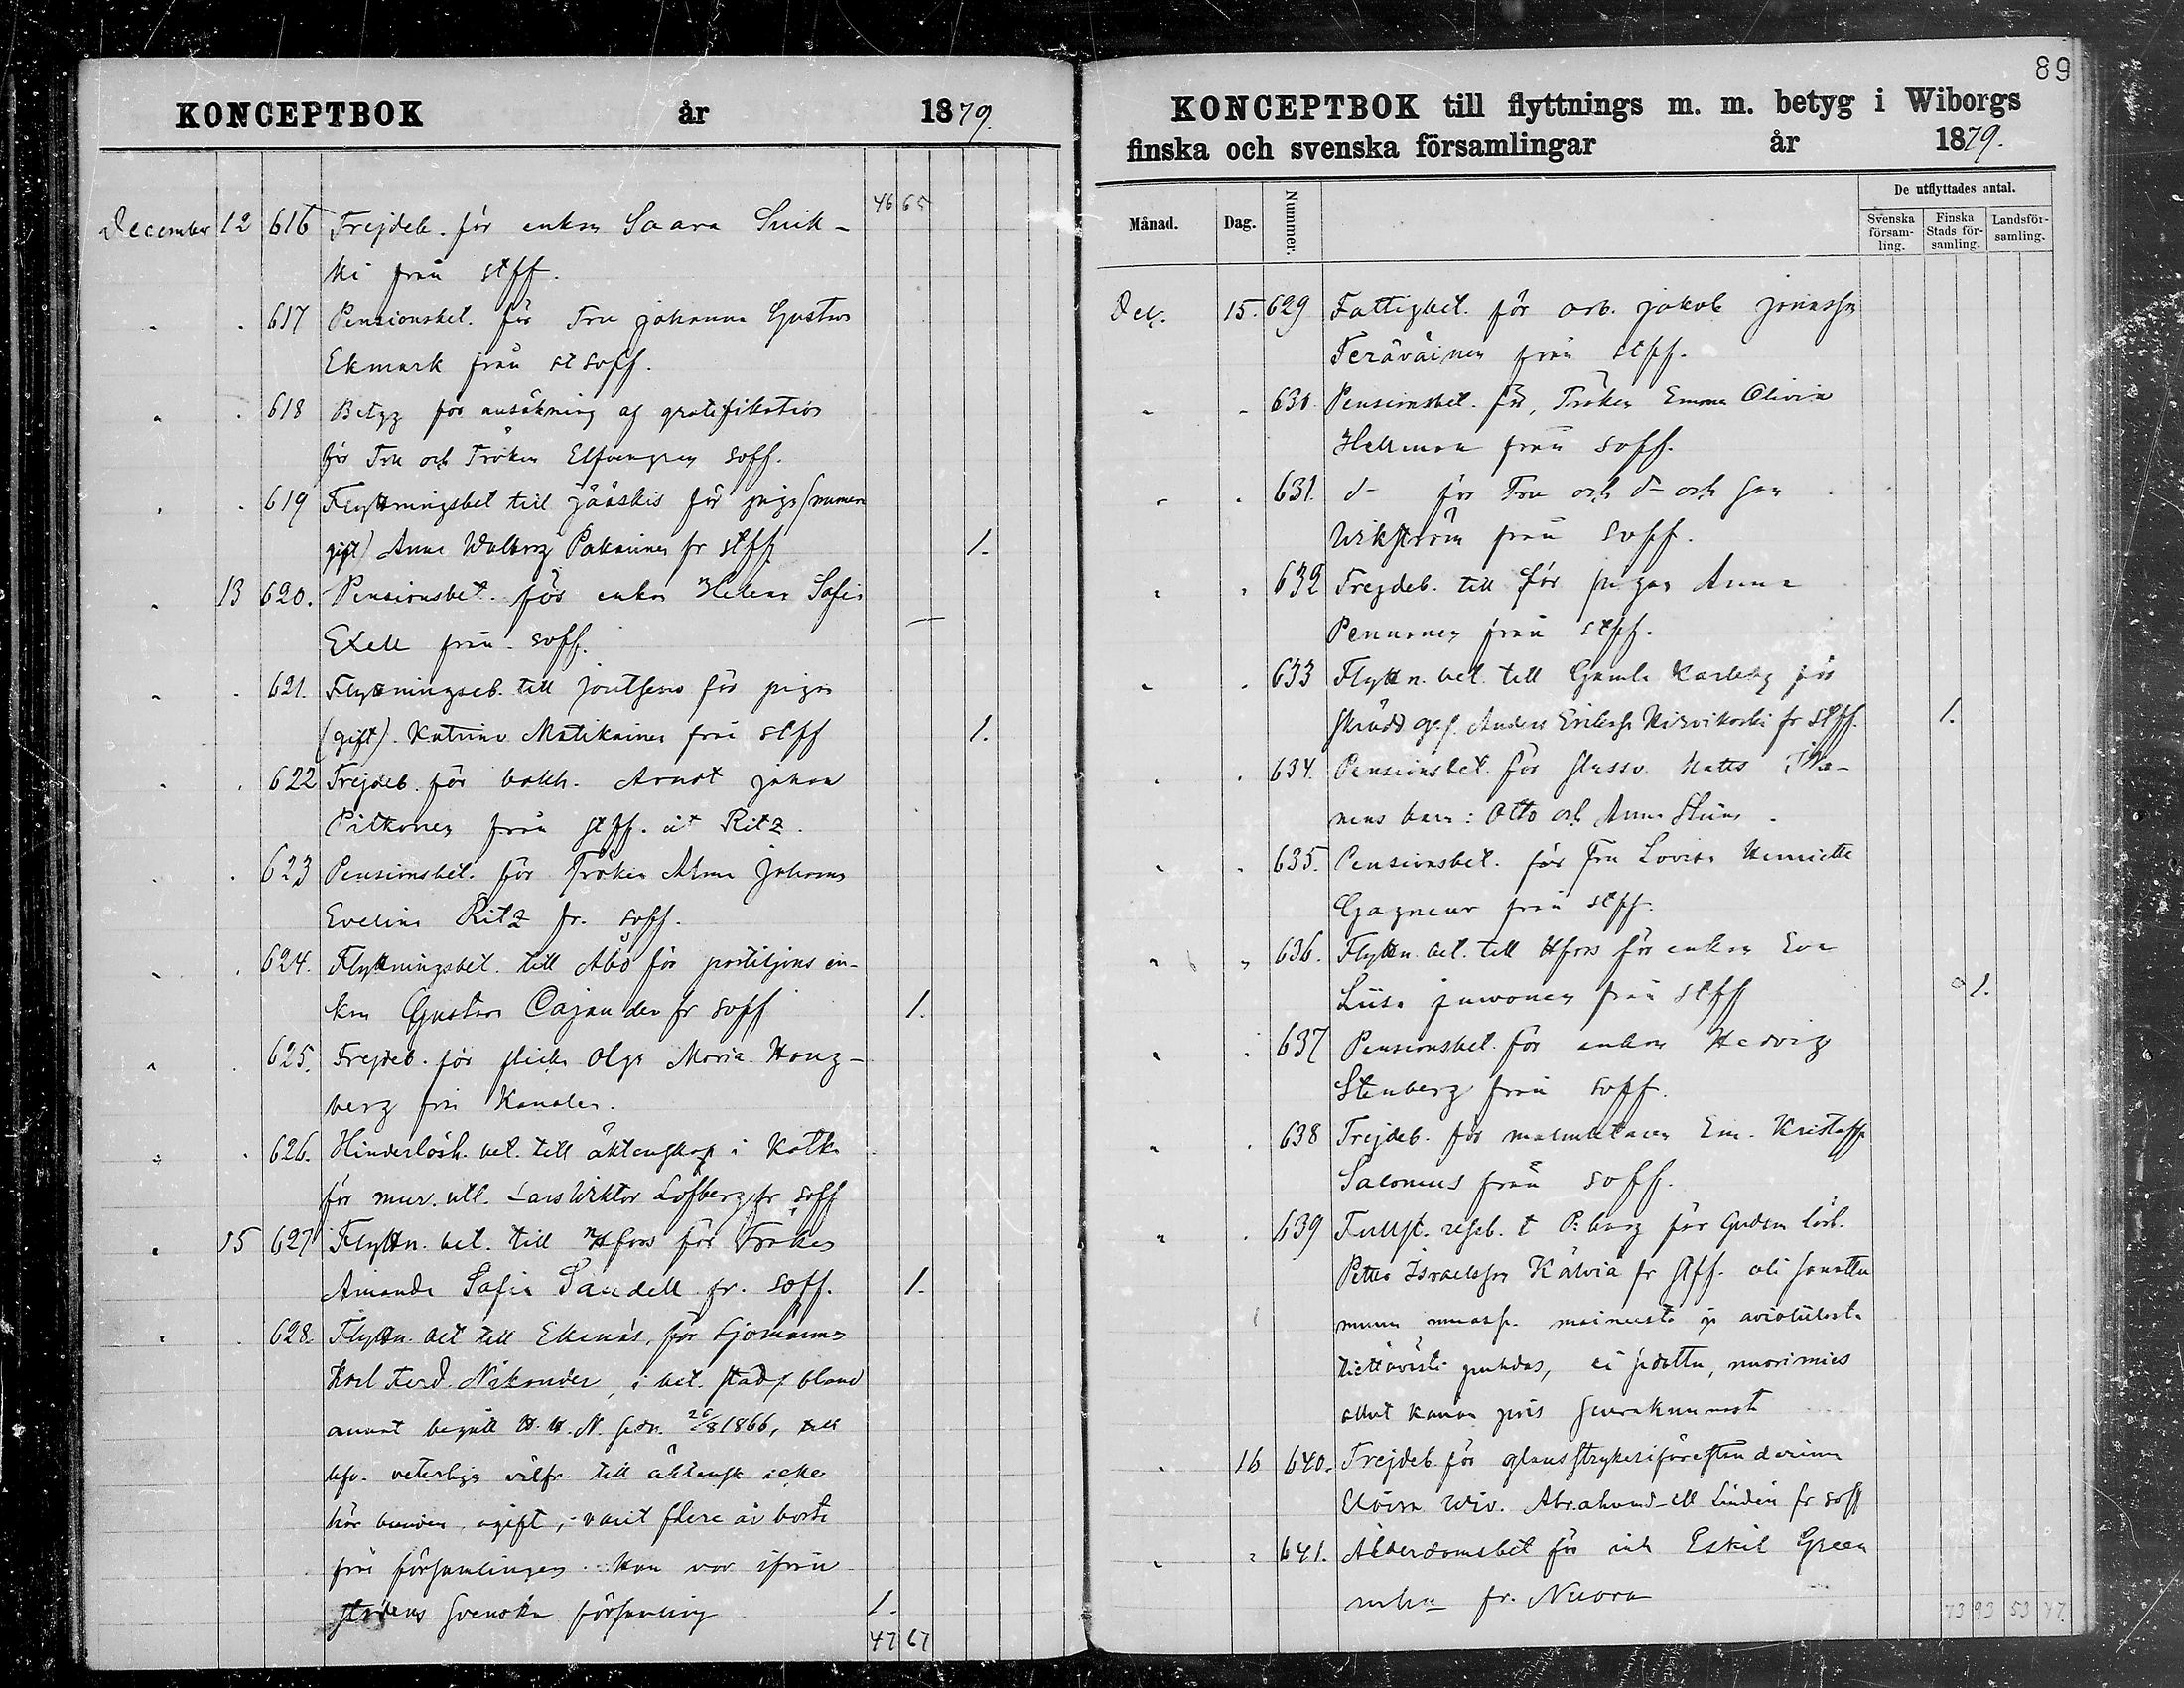 KONCEPTBOK år 1879.
46 65
December 12 616 Frejdeb. för enkan Saara Suik-
ki från stff.
617 Pensionsbet. för Fru Johanna Gustava
Ekmark från st soff.
618 Betyg för ansökning af gratifikation
för Fru och Fröken Elfvengren soff.
619 Flyttningsbet till Jääskis för piga (numera
gift) Anna Walborg Pakarinen fr stff 1.
13 620. Pensionsbet. för enkan Helena Sofia
Exell från soff.
621. Flyttningseb. till Joutseno för pigan
(gift). Katrina Matikainen från stff 1.
622 Frejdeb. för bokh. Arndt Johan
Pitkonen från stff. åt Ritz.
623 Pensionsbet. för Fröken Alma Johanna
Evelina Ritz fr. soff.
624. Flyttningsbet. till Åbo för postiljons en-
kan Gustava Cajander fr soff 1.
625. Frejdeb. för flickan Olga Maria Haug-
berg från Kanalen.
626. Hinderlösh. bet. till äktenskap i Kotka
för mur. Lars Viktor Löfberg fr. soff
15 627 Flyttn. bet. till Hfors för Fröken
Amanda Sofia Sandell fr. soff. 1.
628. Flyttn. bet till Ekenäs för Sjömannen
Karl Ferd. Nikander, i bet. stod bland
annat begått H. H. N. sedn. 26/8 1866, till
veterligen till äktensk icke
här bunden, ogift, varit flere år borta
från församlingen. Han var ifrån
stadens svenska församling 1.
47 67
89
KONCEPTBOK till flyttnings m. m. betyg i Wiborgs
finska och svenska församlingar år 1879.
Månad. Dag. Nummer. De utflyttades antal.
Svenska försam-ling. Finska Stads för-samling. Landsför-samling.
Dec. 15. 629 Fattigbet. för arb. Jakob Jonasson
Teräväinen från stff.
630. Pensionsbet. för Fröken Emma Olivia
Hellman från soff.
631. d- för Fru och d- och son
Wikström från soff.
632 Frejdeb. till för pigan Anna
Pennanen från stff.
633 Flyttn. bet. till Gamla Karleby för
skrädd ges. Anders Eriksson Hirvikoski fr stff. 1.
634. Pensionsbet. för Matts
nens barn: Otto och Anna Stiina.
635. Pensionsbet. för Fru Lovisa Henriette
Gagneur från stff.
636. Flyttn. bet. till Hfors för enkan Eva
Liisa Juvonen från stff 1.
637 Pensionsbet. för enkan Hedvig
Stenberg från soff.
638 Frejdeb. för Em. Kristoffer
Salomus från soff.
639 Fullst. reseb. t P:burg för
Petter Israelsson Kälviä fr stff. oli sanottu
muun muassa. maineesta ja avioliitosta
tiettävästi puhdas, ei sidottu, nuorimies
ollut kauan pois seurakunnasta
16 640. Frejdeb. för glansstrykeriföreståndarinnan
Elvira Wiv. Abrahamd-ell Lindén fr soff
641. Ålderdomsbet för Eskil Green
fr. Nuora
73 93 53 77